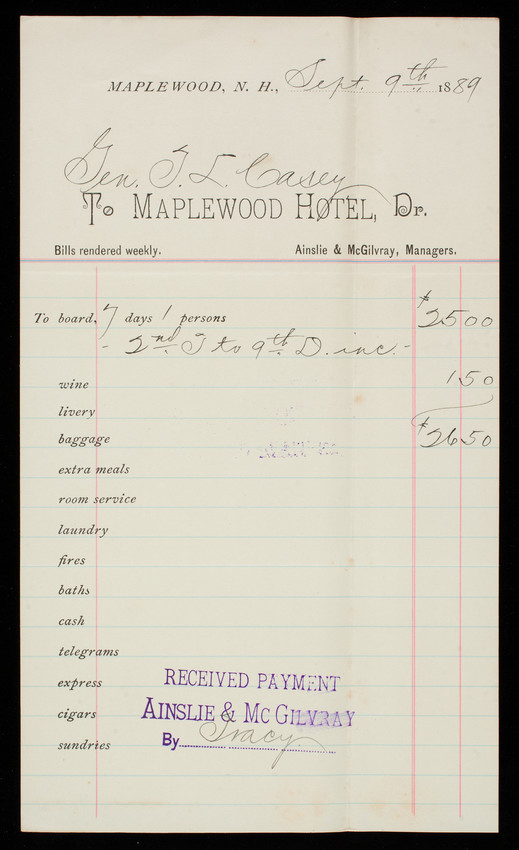 MAPLEWOOD, N. H., Sept. 9th 1889
Gen. T. L. Casey
To MAPLEWOOD HOTEL, Dr.
Bills rendered weekly. Ainslie & McGilvray, Managers.
To board, 7 days 1 persons $25 00
- 2nd T to 9th D. inc. -
wine 1 50
livery
baggage $26 50
extra meals
room service
laundry
fires
baths
cash
telegrams
express
cigars
sundries
RECEIVED PAYMENT
AINSLIE & MCGILVRAY
By Tracy.